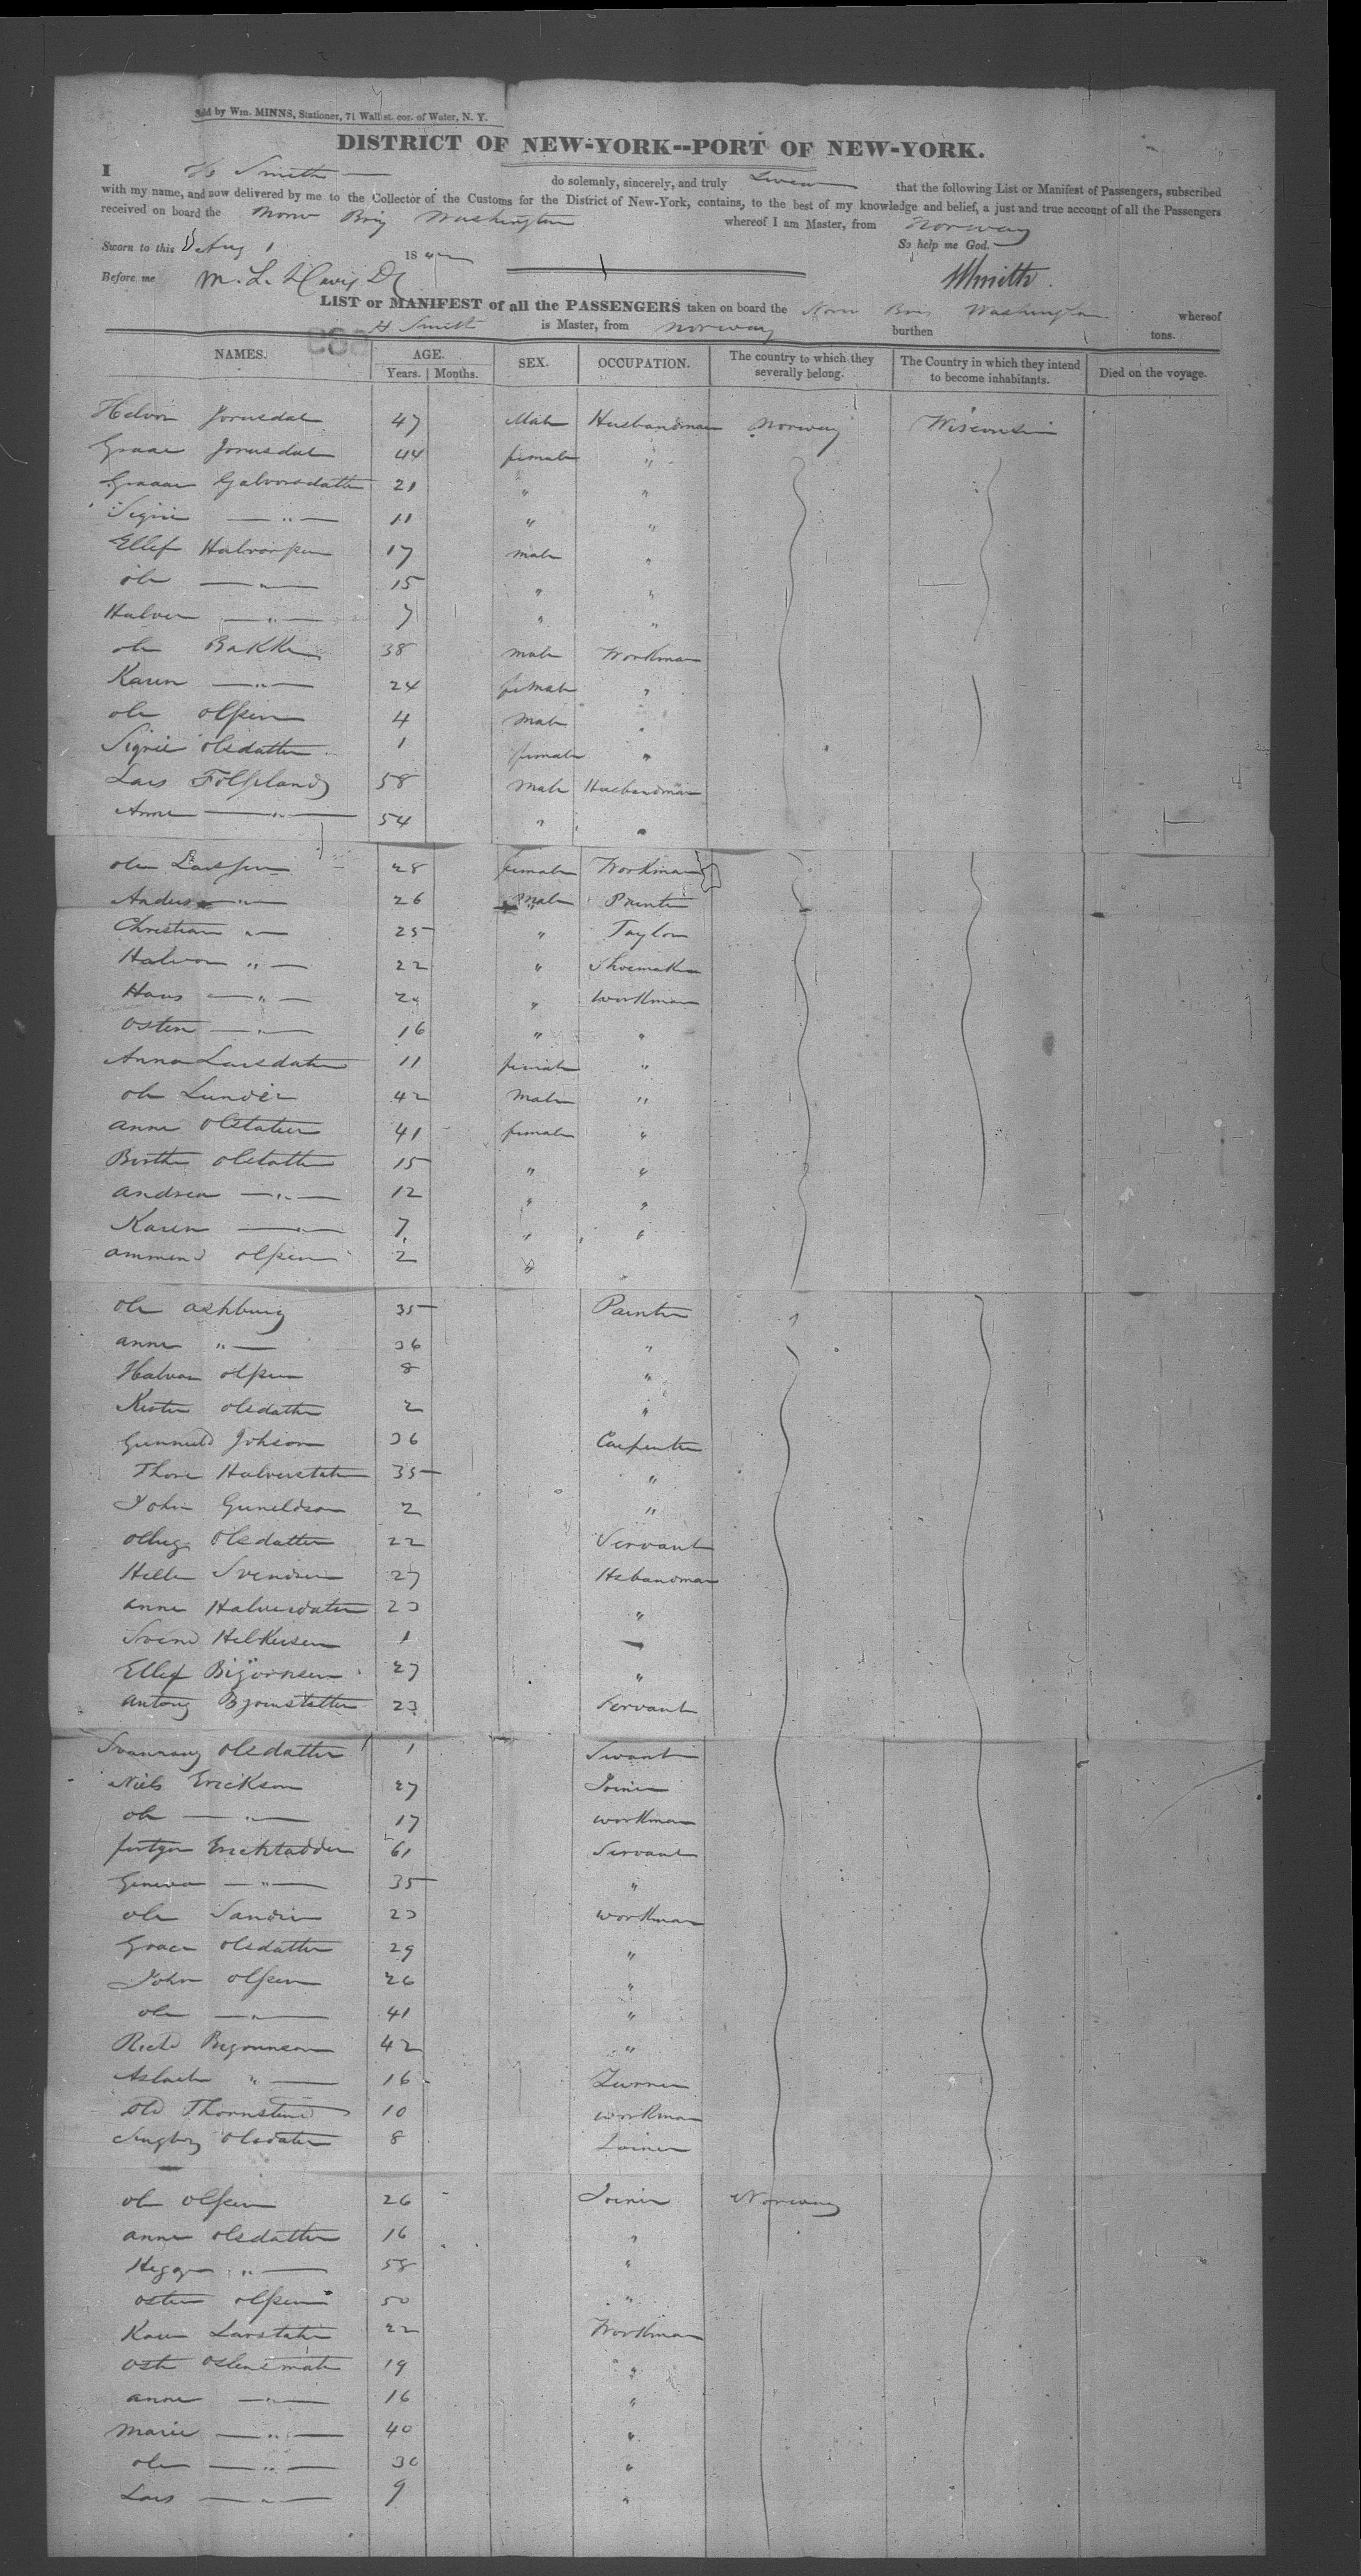 Sold by Wm. MINNS, Stationer, 71 Wall st. cor. of Water, N. Y.
DISTRICT OF NEW-YORK--PORT OF NEW-YORK.
I H Smith do solemnly, sincerely, and truly Swear that the following List or Manifest of Passengers, subscribed
with my name, and now delivered by me to the Collector of the Customs for the District of New-York, contains, to the best of my knowledge and belief, a just and true account of all the Passengers
received on board the Norw Brig Washington whereof I am Master, from Norway
Sworn to this Aug 1 18 So help me God.
Before me M. L. Davis HSmith.
LIST or MANIFEST of all the PASSENGERS taken on board the Norw Brig Washington whereof
H Smith is Master, from Norway burthen tons.
NAMES. AGE. SEX. OCCUPATION. The country to which they severally belong. The Country in which they intend to become inhabitants. Died on the voyage.
Years. Months.
Helvor Jorusdal 47 Male Husbandman Norway Wisconsin
Graae Jorusdal 44 female "
Graaae Galvorsdatter 21 " "
Signe — " — 11 " "
Ellef Halvorsen 17 male "
Ole — " — 15 " "
Halvor — " — 7 " "
Ole Bakken 38 male Workman
Karen — " — 24 female "
Ole Olsen 4 male "
Signe Olsdatter 1 female "
Lars Folseland 58 Male Husbandman
Anne — " — 54 " "
Ole Larssen 28 female Workman
Anders — " — 26 male Painter
Christian " — 25 " Taylor
Halvor " — 22 " Shoemaker
Hans — " — " Workman
Osten — " — 16 " "
Anna Larsdatter 11 female "
Ole Lunder 42 male "
Anne Olstatter 41 female "
Berthe Olstatter 15 " "
Andrea — " — 12 " "
Karen — " — 7 " "
Ammend Olsen 2 "
Ole Ashburg 35 Painter
Anne " — 36 "
Halvor Olsen 8 "
Kester Olsdatter 2 "
Gunnuld Johson 36 Carpenter
Thore Halverstatter 35 "
John Guneldson 2 "
Olsdatter 22 Servant
Helle Svendsen 27 Hsbandman
Anne Halversdatter 23 "
Svend Helkersen 1
Ellef Bijörnsen 27 "
Antong Bjornstatter 23 Servant
Olsdatter 1 Servant
Niels Erickson 27 Joiner
Ole — " — 17 Workman
Erickstadder 61 Servant
Geneva — " — 35 "
Ole Sander 23 Workman
Grace Olsdatter 29 "
John Olsen 26 "
Ole — " — 41 "
42 "
Aslach " — 16 Turner
Old Thornstend 10 Workman
Olsdatter 8 Joiner
Ole Olsen 26 Joiner Norway
Anne Olsdatter 16 "
Hegge " — 58 "
Osten Olsen 50 "
Karen Larstatter 22 Workman
19 "
Anne — " — 16 "
Marie — " — 40 "
Ole — " — 30 "
Lars — " — 9 "